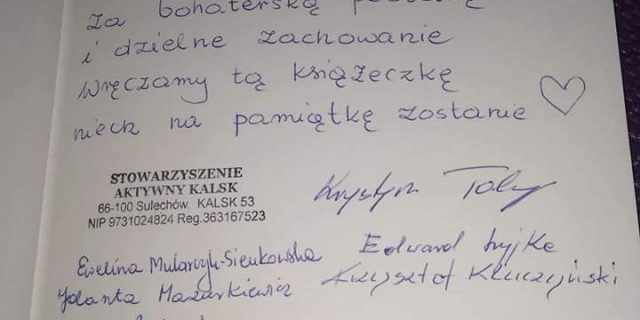 za bohaterską
i dzielne zachowanie
wręczamy tą książeczkę
niech na pamiątkę zostanie
STOWARZYSZENIE
AKTYWNY KALSK
66-100 Sulechów, KALSK 53
NIP 9731024824 Reg.363167523
Krystyn
Ewelina Mularczyk-Sieńkowska
Edward
Jolanta Mazurkiewicz
Krzysztof Kluczyński